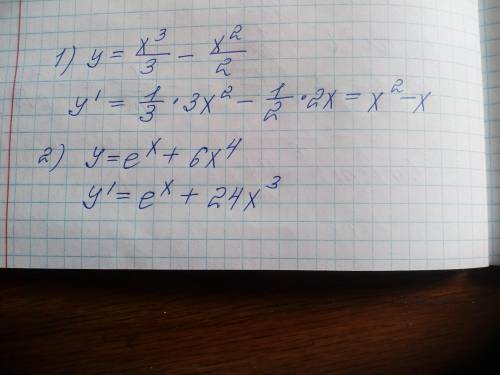 1) y = x³/3 - x²/2
y' = 1/3 · 3x² - 1/2 · 2x = x² - x
2) y = eˣ + 6x⁴
y' = eˣ + 24x³